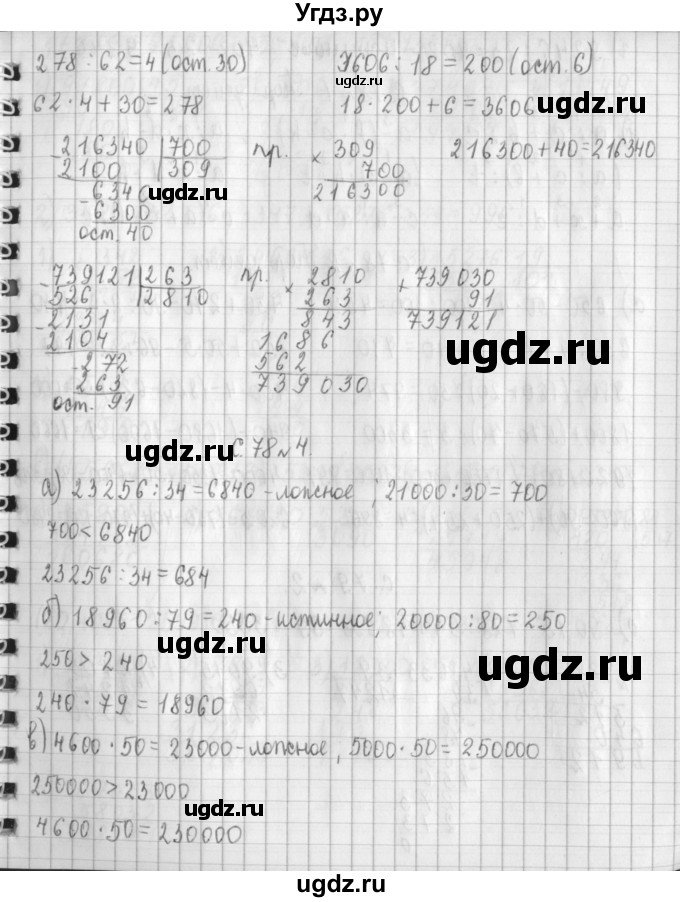 Угдз.ру
278 : 62 = 4 (ост. 30)
3606 : 18 = 200 (ост. 6)
ugdz.ru
62 · 4 + 30 = 278
18 · 200 + 6 = 3606
ugdz.ru
- 216340 | 700
2100 | 309
- 6340
6300
ост. 40
ugdz.ru
пр. × 309
700
216300
216300 + 40 = 216340
- 739121 | 263
526 | 2810
- 2131
2104
- 272
263
ост. 91
пр. × 2810
263
843
1686
562
739030
+ 739030
91
739121
ugdz.ru
ugdz.ru
С. 78 № 4.
а) 23256 : 34 = 6840 - ложное ; 21000 : 30 = 700
700 < 6840
ugdz.ru
23256 : 34 = 684
б) 18960 : 79 = 240 - истинное; 20000 : 80 = 250
250 > 240
ugdz.ru
ugdz.ru
240 · 79 = 18960
в) 4600 · 50 = 23000 - ложное, 5000 · 50 = 250000
250000 > 23000
ugdz.ru
4600 · 50 = 230000
ugdz.ru